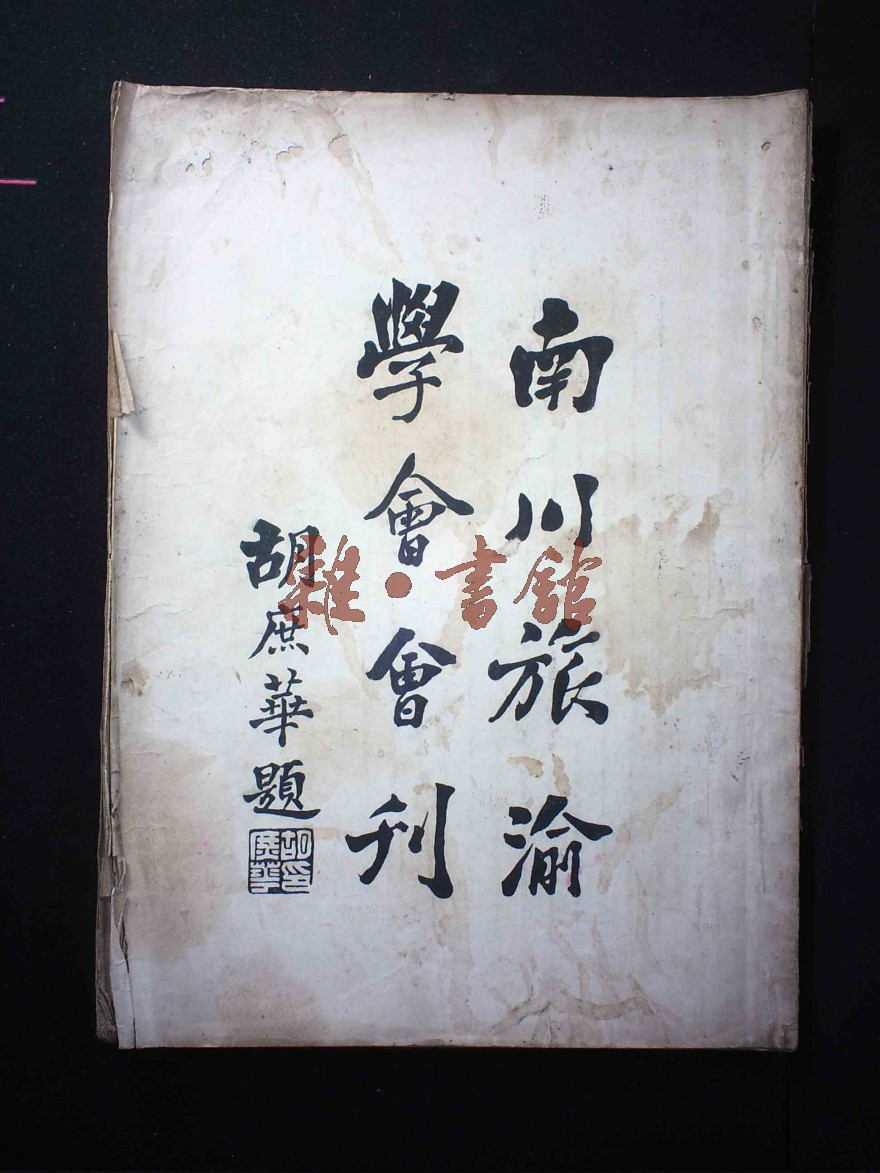 南川旅渝
學會會刊
胡庶華題
胡庶華印
雜·書館